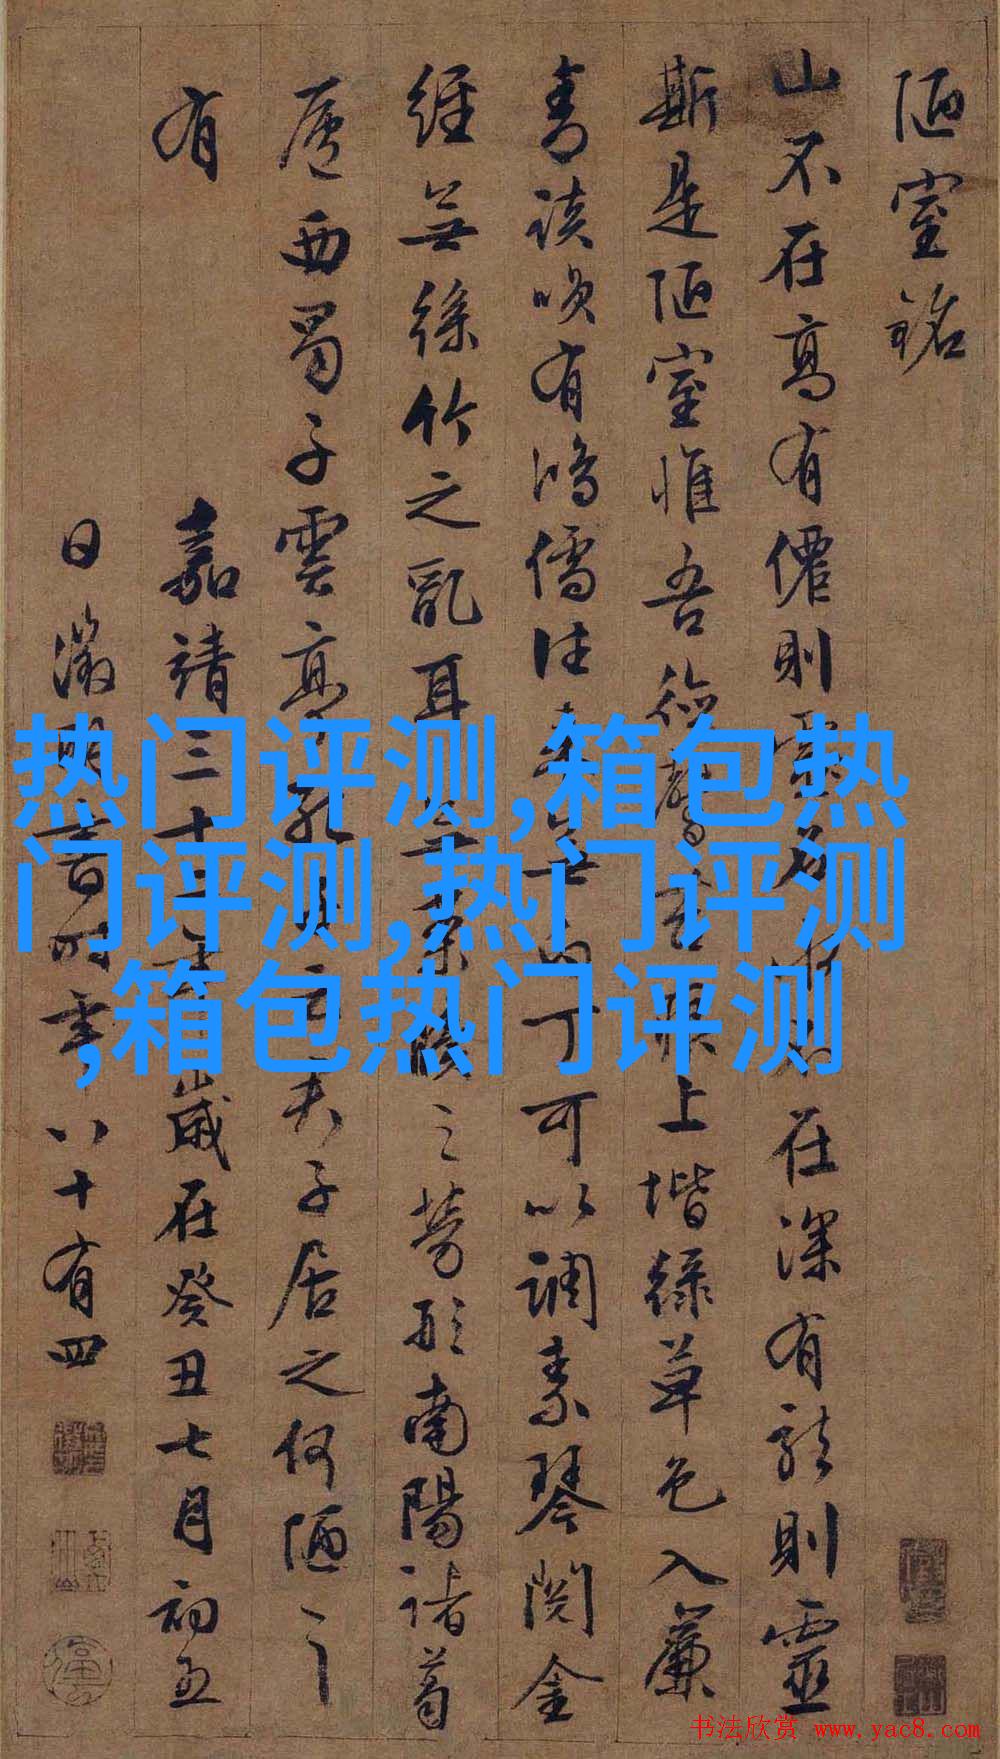 陋室銘
山不在高有僊則名水不在深有龍則靈
斯是陋室惟吾德馨苔痕上堦綠草色入簾
青談咲有鴻儒往來無白丁可以調素琴閱金
經無絲竹之亂耳無案牘之勞形南陽諸葛
廬西蜀子雲亭孔云夫子居之何陋之
有
嘉靖三十二年歲在癸丑七月初五
日徵明書時年八十有四
热门评测,箱包热
门评测,热门评测
,箱包热门评测
书法欣赏 www.yac8.com